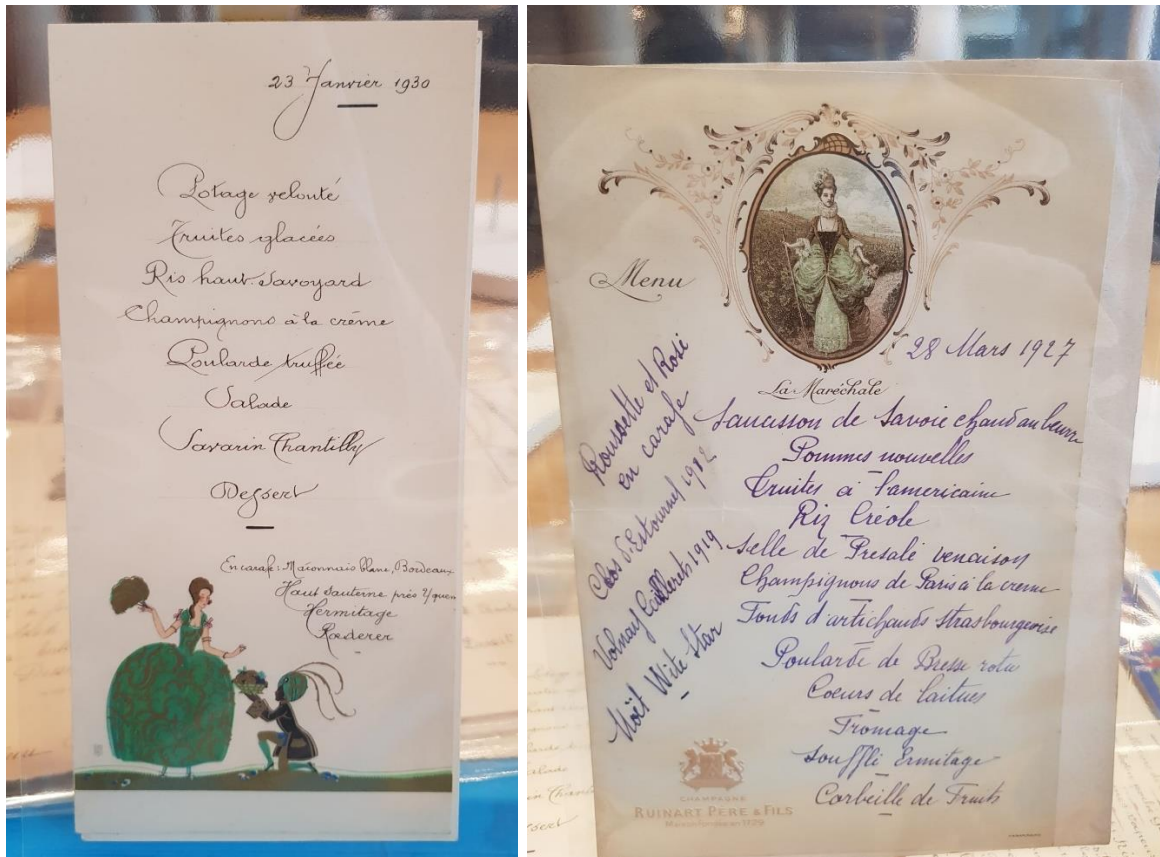 23 Janvier 1930
Potage velouté
Truites glacées
Ris haut-Savoyard
Champignons à la crème
Poularde truffée
Salade
Savarin Chantilly
Dessert
En carafe: Maconnais blanc, Bordeaux
Haut Sauterne près Yquem
Hermitage
Rœderer
Menu
28 Mars 1927
La Maréchale
Roussette et Rosé
en carafe
Clos d'Estournel 1912
Volnay Caillerets 1919
Moët Wite Star
Saucisson de Savoie chaud au beurre
Pommes nouvelles
Truites à l'americaine
Riz Créole
Selle de Presalé venaison
Champignons de Paris à la creme
Fonds d'artichauds strasbourgeoise
Poularde de Bresse rotie
Coeurs de laitues
Fromage
Souffli Ermitage
Corbeille de Fruits
CHAMPAGNE
RUINART PÈRE & FILS
Maison fondée en 1729